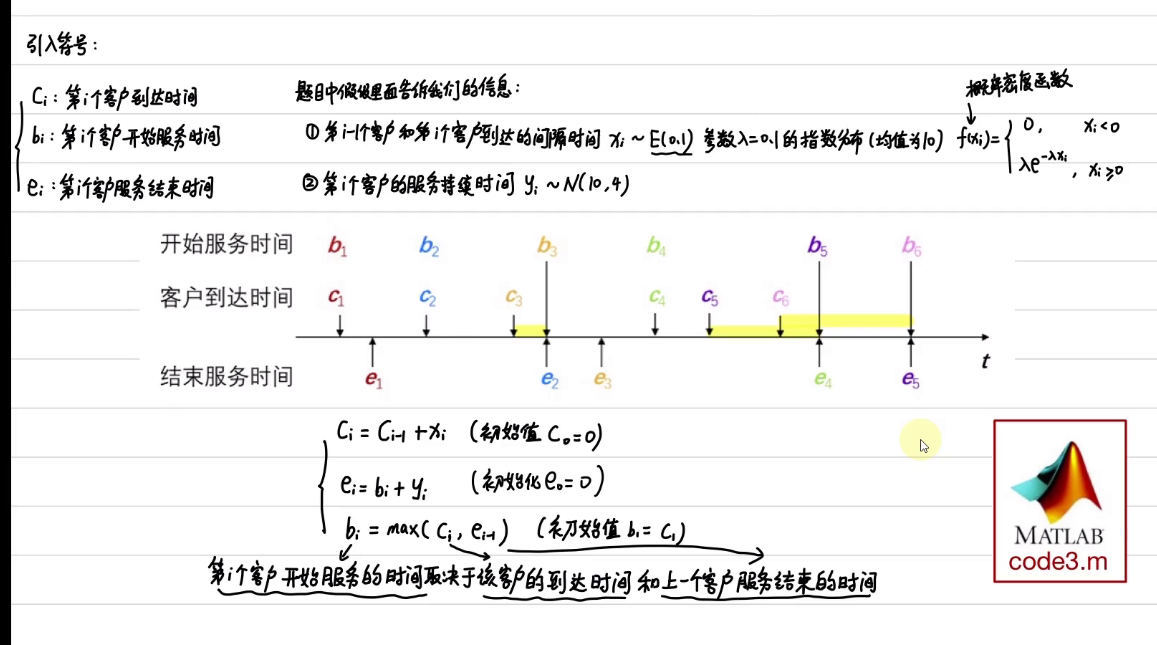 引入符号:
Ci: 第i个客户到达时间
bi: 第i个客户开始服务时间
ei: 第i个客户服务结束时间
题目中假设里面告诉我们的信息:
① 第i-1个客户和第i个客户到达的间隔时间 xi ~ E(0.1) 参数λ=0.1的指数分布(均值为10)
② 第i个客户的服务持续时间 yi ~ N(10,4)
概率密度函数
f(xi)= { 0, xi<0
λe^-λxi, xi≥0
开始服务时间 b1 b2 b3 b4 b5 b6
客户到达时间 c1 c2 c3 c4 c5 c6
t
结束服务时间 e1 e2 e3 e4 e5
Ci = Ci-1 + xi (初始值 C0=0)
ei = bi + yi (初始化 e0=0)
bi = max(Ci, ei-1) (初始值 b1=C1)
第i个客户开始服务的时间取决于该客户的到达时间和上一个客户服务结束的时间
MATLAB
code3.m